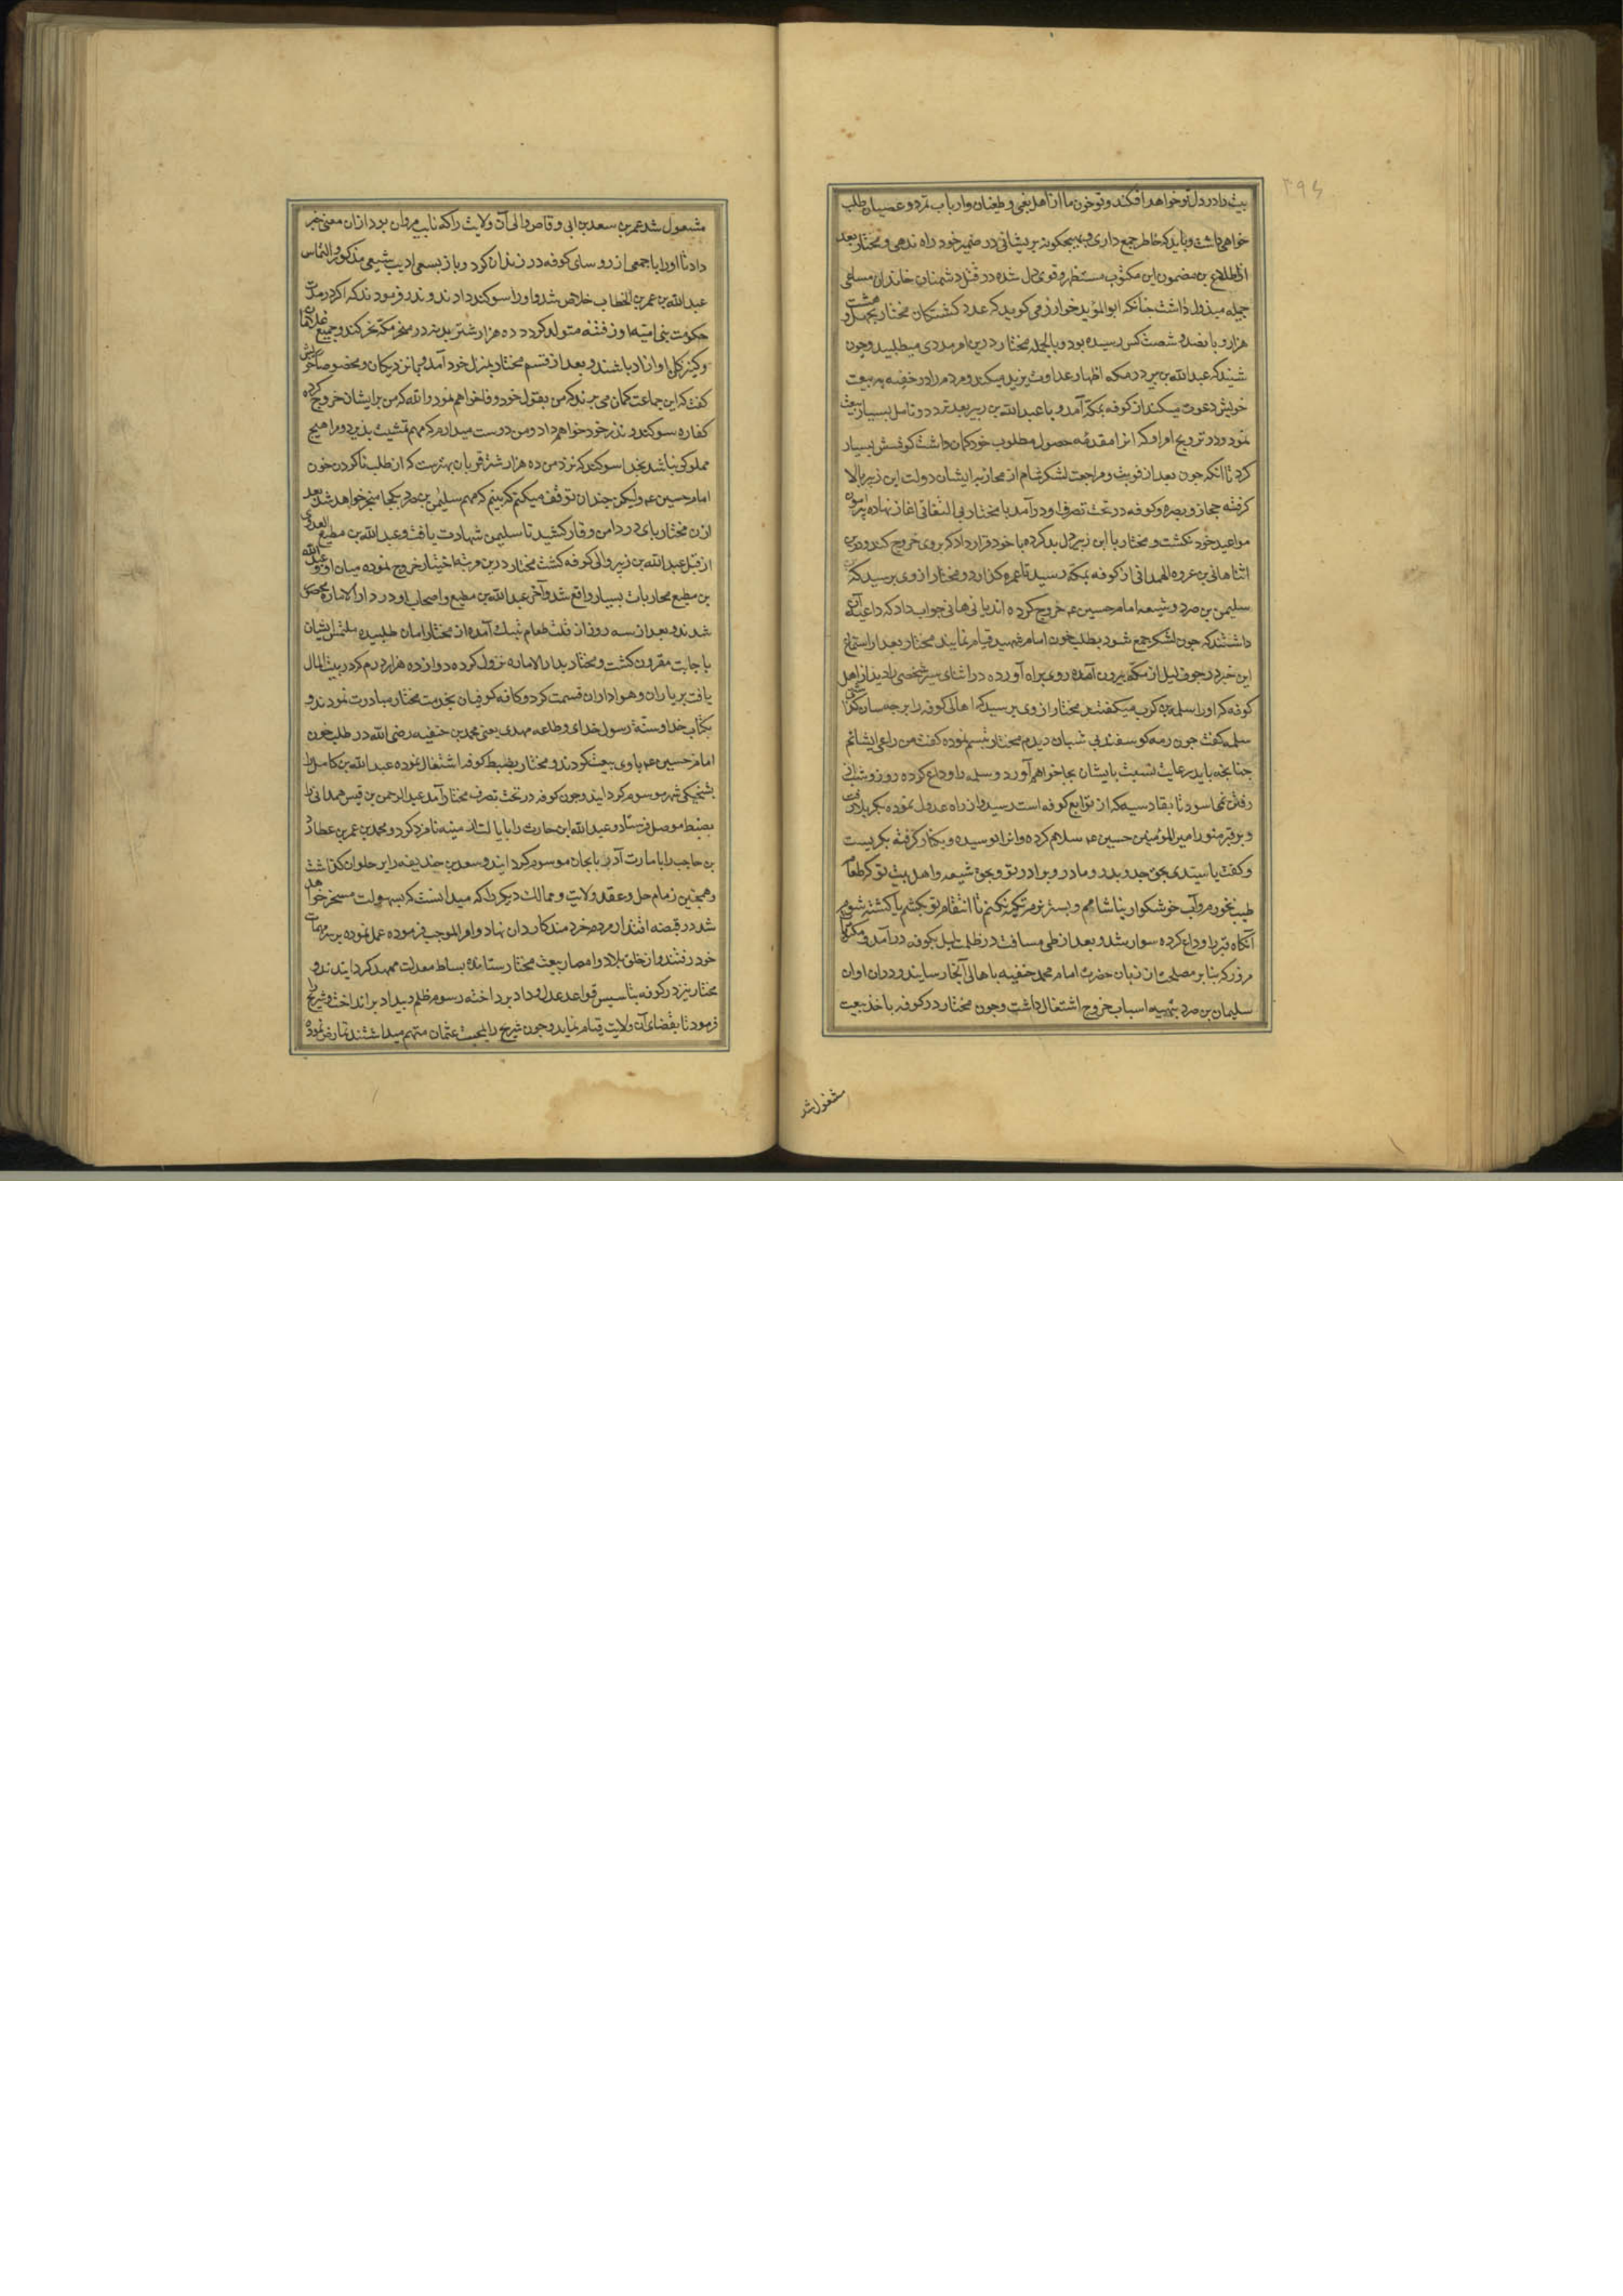 ۲۹۴
بیت را در دل تو خواهد افکند و تو خون ما را از اهل بغی و طغیان و ارباب تمرد و عصیان طلب
خواهی داشت و باید که خاطر جمع داری و بهیچگونه پریشانی در ضمیر خود راه ندهی و مختار بعد
از اطلاع بر مضمون این مکتوب مستظهر و قوی دل شده در قتل دشمنان خاندان مساعی
جمیله مبذول داشت چنانکه ابو المؤید خوارزمی کوید که عدد کشتکان مختار بچهل و هشت
هزار و پانصد و شصت کس رسیده بود و بالجمله مختار درین امر مددی میطلبید و چون
شنید که عبد الله بن زبیر در مکه اظهار عداوت یزید میکند و مردم را در خفیه به بیعت
خویش دعوت میکند از کوفه بمکه آمد و با عبد الله بن زبیر بعد تردد و تامل بسیار بیعت
نمود و در ترویج امر او که انرا مقدمه حصول مطلوب خود کمان داشت کوشش بسیار
کرد تا انکه چون بعد از فوت و مراجعت لشکر شام از محاربه ایشان دولت ابن زبیر بالا
کرفته حجاز و بصره و کوفه در تحت تصرف او در آمد با مختار بی التفاتی اغاز نهاده پیرامون
مواعید خود نکشت و مختار با ابن زبیر دل بد کرده با خود قرار داد که بر وی خروج کند و درین
اثنا هانی بن عروه الهمدانی از کوفه بمکه رسید تا عمره کزارد و مختار از وی پرسید که
سلیمن بن صرد و شیعه امام حسین عم خروج کرده اند یا نی هانی جواب داد که داعیه آن
داشتند که چون لشکر جمع شود بطلب خون امام شهید قیام نمایند مختار بعد از استماع
این خبر در جوف لیل از مکه بیرون آمده روی براه آورده در اثنای سیر شخصی را دید از اهل
کوفه که او را سلمه بن کرب میکفتند مختار از وی پرسید که اهالی کوفه را بر چه سان کذاشتی
سلمه کفت چون رمه کوسفند بی شبان دیدم مختار تبسم نموده کفت من راعی ایشانم
چنانچه باید رعایت نسبت بایشان بجا خواهم آورد و سلمه را وداع کرده روز و شب می
رفتن نمی اسود تا بقادسیه که از توابع کوفه است رسید و از راه عدول نموده بکربلا رفت
و بر قبر منور امیر المؤمنین حسین عم سلام کرده و انرا بوسیده و بکنار کرفته بکریست
و کفت یا سیدی بحق جد و پدر و مادر و برادر تو و بحق شیعه و اهل بیت تو که طعام
طیب نخورم و آب خوشکوار نیاشامم و بستر نرم تکیه نکنم تا انتقام تو بکشم یا کشته شوم
آنکاه قبر را وداع کرده سوار شد و بعد از طی مسافت در ظلمت لیل بکوفه در آمد و مکتوبات
مزور که بنا بر مصلحت از زبان حضرت امام محمد حنفیه باهالی آنجا رسانید و در ان اوان
سلیمان بن صرد بتهیه اسباب خروج اشتغال داشت و چون مختار در کوفه باخذ بیعت
مشغول شد
مشغول شد عمر بن سعد بن ابی وقاص والی آن ولایت را که نایب مروان بود از ان معنی خبر
داد تا او را با جمعی از روسای کوفه در زندان کرد و باز بسعی ادیب شیعی مذکور و التماس
عبد الله بن عمر بن الخطاب خلاص شد و او را سوکند دادند و نذر فرمودند که اکر در مدت
حکومت بنی امیه از و فتنه متولد کردد ده هزار شتر بدنه در منحر مکه نحر کند و جمیع غلامان
و کنیزکان او ازاد باشند و بعد از قسم مختار بمنزل خود آمد و بهانز دیکان و مخصوصان خویش
کفت که این جماعت کمان می برند که من بقول خود وفا خواهم نمود و الله که من بر ایشان خروج کرده
کفاره سوکند و نذر خود خواهم داد و من دوست میدارم که مهم تمشیت پذیرد و مرا هیچ
مملوکی نباشد بخدا سوکند که نزد من ده هزار شتر قربان بهتر نیست که از طلب ناکردن خون
امام حسین عم ولیکن چندان توقف میکنم که بینم که مهم سلیمن بن صرد بکجا منجر خواهد شد بعد
ازن مختار پای در دامن وقار کشید تا سلیمن شهادت یافت و عبد الله بن مطیع العدوی
از قبل عبد الله بن زبیر والی کوفه کشت مختار درین مرتبه اختیار خروج نموده میان او و عبد الله
بن مطیع محاربات بسیار واقع شد و آخر عبد الله بن مطیع و اصحاب او در دار الاماره محصور
شدند و بعد از سه روز از قلت طعام بتنک آمده از مختار امان طلبیده ملتمس ایشان
باجابت مقرون کشت و مختار بدار الاماره نزول کرده دوازده هزار درم که در بیت المال
یافت بر یاران و هواداران قسمت کرد و کافه کوفیان بخدمت مختار مبادرت نمودند و
بکتاب خدا و سنة رسول خدای و طاعه مهدی یعنی محمد بن حنفیه رضی الله در طلب خون
امام حسین عم با وی بیعت کردند و مختار بضبط کوفه اشتغال نموده عبد الله بن کامل را
بشحنکی شهر موسوم کردانید و چون کوفه در تحت تصرف مختار آمد عبد الرحمن بن قیس همدانی را
بضبط موصل فرستاد و عبد الله ابن حارث را بایالت ارمینیه نامزد کرد و محمد بن عمر بن عطارد
بن حاجب را بامارت آذربایجان موسوم کردانید و سعد بن حذیفه را بر حلوان کماشت
و همچنین زمام حل و عقد ولایت و ممالک دیکر را که میدانست که بسهولت مسخر خواهد
شد در قبضه اقتدار مردم خردمند کاردان نهاد و امرا بموجب فرموده عمل نموده بر سر مهمات
خود رفتند و از خلق بلاد و امصار بیعت مختار ستانده بساط معدلت ممهد کردانیدند و
مختار نیز در کوفه بتاسیس قواعد عدل و داد پرداخته رسوم ظلم و بیداد بر انداخت و شریح را
فرمود تا بقضای آن ولایت قیام نماید و چون شریح را بمحبت عثمان متهم میداشتند تمارض نموده